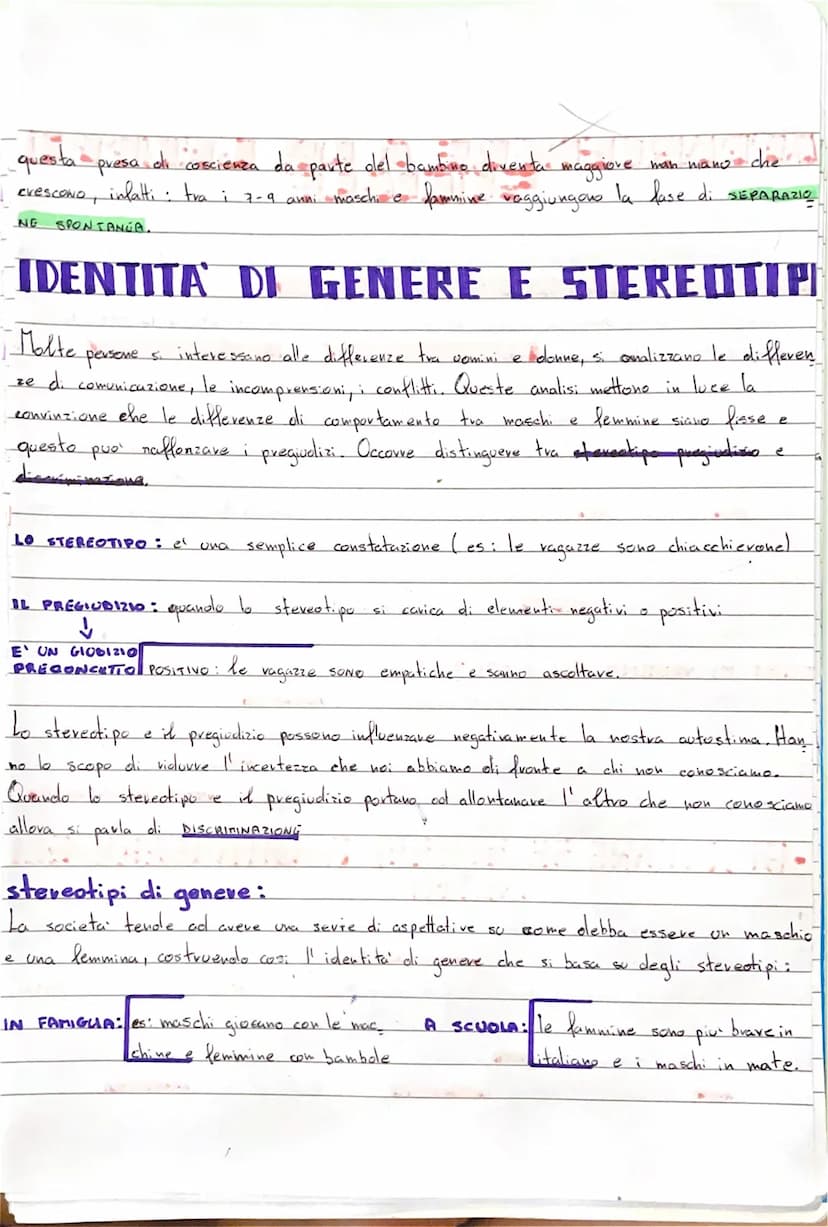 questa presa di coscienza da parte del bambino diventa maggiore man mano che
crescono, infatti: tra i 7-9 anni maschi e femmine raggiungono la fase di SEPARAZIO
NE SPONTANEA.
IDENTITA' DI GENERE E STEREOTIPI
Molte persone si interessano alle differenze tra uomini e donne, si analizzano le differen
ze di comunicazione, le incomprensioni, i conflitti. Queste analisi mettono in luce la
convinzione che le differenze di comportamento tra maschi e femmine siano fisse e
questo puo' rafforzare i pregiudizi. Occorre distinguere tra stereotipo pregiudizio e
discriminazione.
LO STEREOTIPO: e' una semplice constatazione (es: le ragazze sono chiacchierone)
IL PREGIUDIZIO: quando lo stereotipo si carica di elementi negativi o positivi
↓
E' UN GIUDIZIO
PRECONCETTO POSITIVO: le ragazze sono empatiche e sanno ascoltare.
Lo stereotipo e il pregiudizio possono influenzare negativamente la nostra autostima. Han
no lo scopo di ridurre l'incertezza che noi abbiamo di fronte a chi non conosciamo.
Quando lo stereotipo e il pregiudizio portano ad allontanare l'altro che non conosciamo
allora si parla di DISCRIMINAZIONE
stereotipi di genere:
La societa' tende ad avere una serie di aspettative su come debba essere un maschio
e una femmina, costruendo cosi l'identita' di genere che si basa su degli stereotipi:
IN FAMIGLIA: es: maschi giocano con le mac A SCUOLA: le femmine sono piu' brave in
chine e femmine con bambole italiano e i maschi in mate.